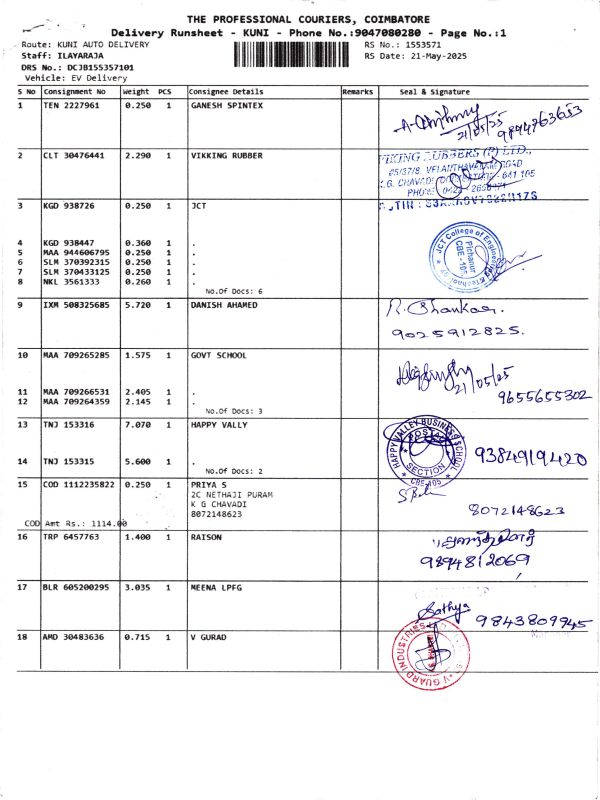 THE PROFESSIONAL COURIERS, COIMBATORE
Delivery Runsheet - KUNI - Phone No.:9047080280 - Page No.:1
Route: KUNI AUTO DELIVERY RS No.: 1553571
Staff: ILAYARAJA RS Date: 21-May-2025
DRS No.: DCJB155357101
Vehicle: EV Delivery
S No Consignment No Weight PCS Consignee Details Remarks Seal & Signature
1 TEN 2227961 0.250 1 GANESH SPINTEX
21/05/25 9894763653
2 CLT 30476441 2.290 1 VIKKING RUBBER
VIKING RUBBERS (P) LTD.,
05/37/8, VELANTHAVALAM ROAD
K.G. CHAVADI, COIMBATORE - 641 105
PHONE: 0422 -
3 KGD 938726 0.250 1 JCT
4 KGD 938447 0.360 1 .
5 MAA 944606795 0.250 1 .
6 SLM 370392315 0.250 1 .
7 SLM 370433125 0.250 1 .
8 NKL 3561333 0.260 1 .
No.Of Docs: 6
JCT College of Engineering
Pichanur
CBE - 105
9 IXM 508325685 5.720 1 DANISH AHAMED
R. Shankar.
9025912825.
10 MAA 709265285 1.575 1 GOVT SCHOOL
21/05/25
11 MAA 709266531 2.405 1 .
12 MAA 709264359 2.145 1 .
No.Of Docs: 3
9655655302
13 TNJ 153316 7.070 1 HAPPY VALLY
14 TNJ 153315 5.600 1 .
No.Of Docs: 2
HAPPY VALLEY BUSINESS SCHOOL
POSTAL
SECTION
CBE-105
9384919420
15 COD 1112235822 0.250 1 PRIYA S
2C NETHAJI PURAM
K G CHAVADI
8072148623
COD Amt Rs.: 1114.00
8072148623
16 TRP 6457763 1.400 1 RAISON
9894812069
17 BLR 605200295 3.035 1 MEENA LPFG
Sathya 9843809945
18 AMD 30483636 0.715 1 V GURAD
V GUARD INDUSTRIES